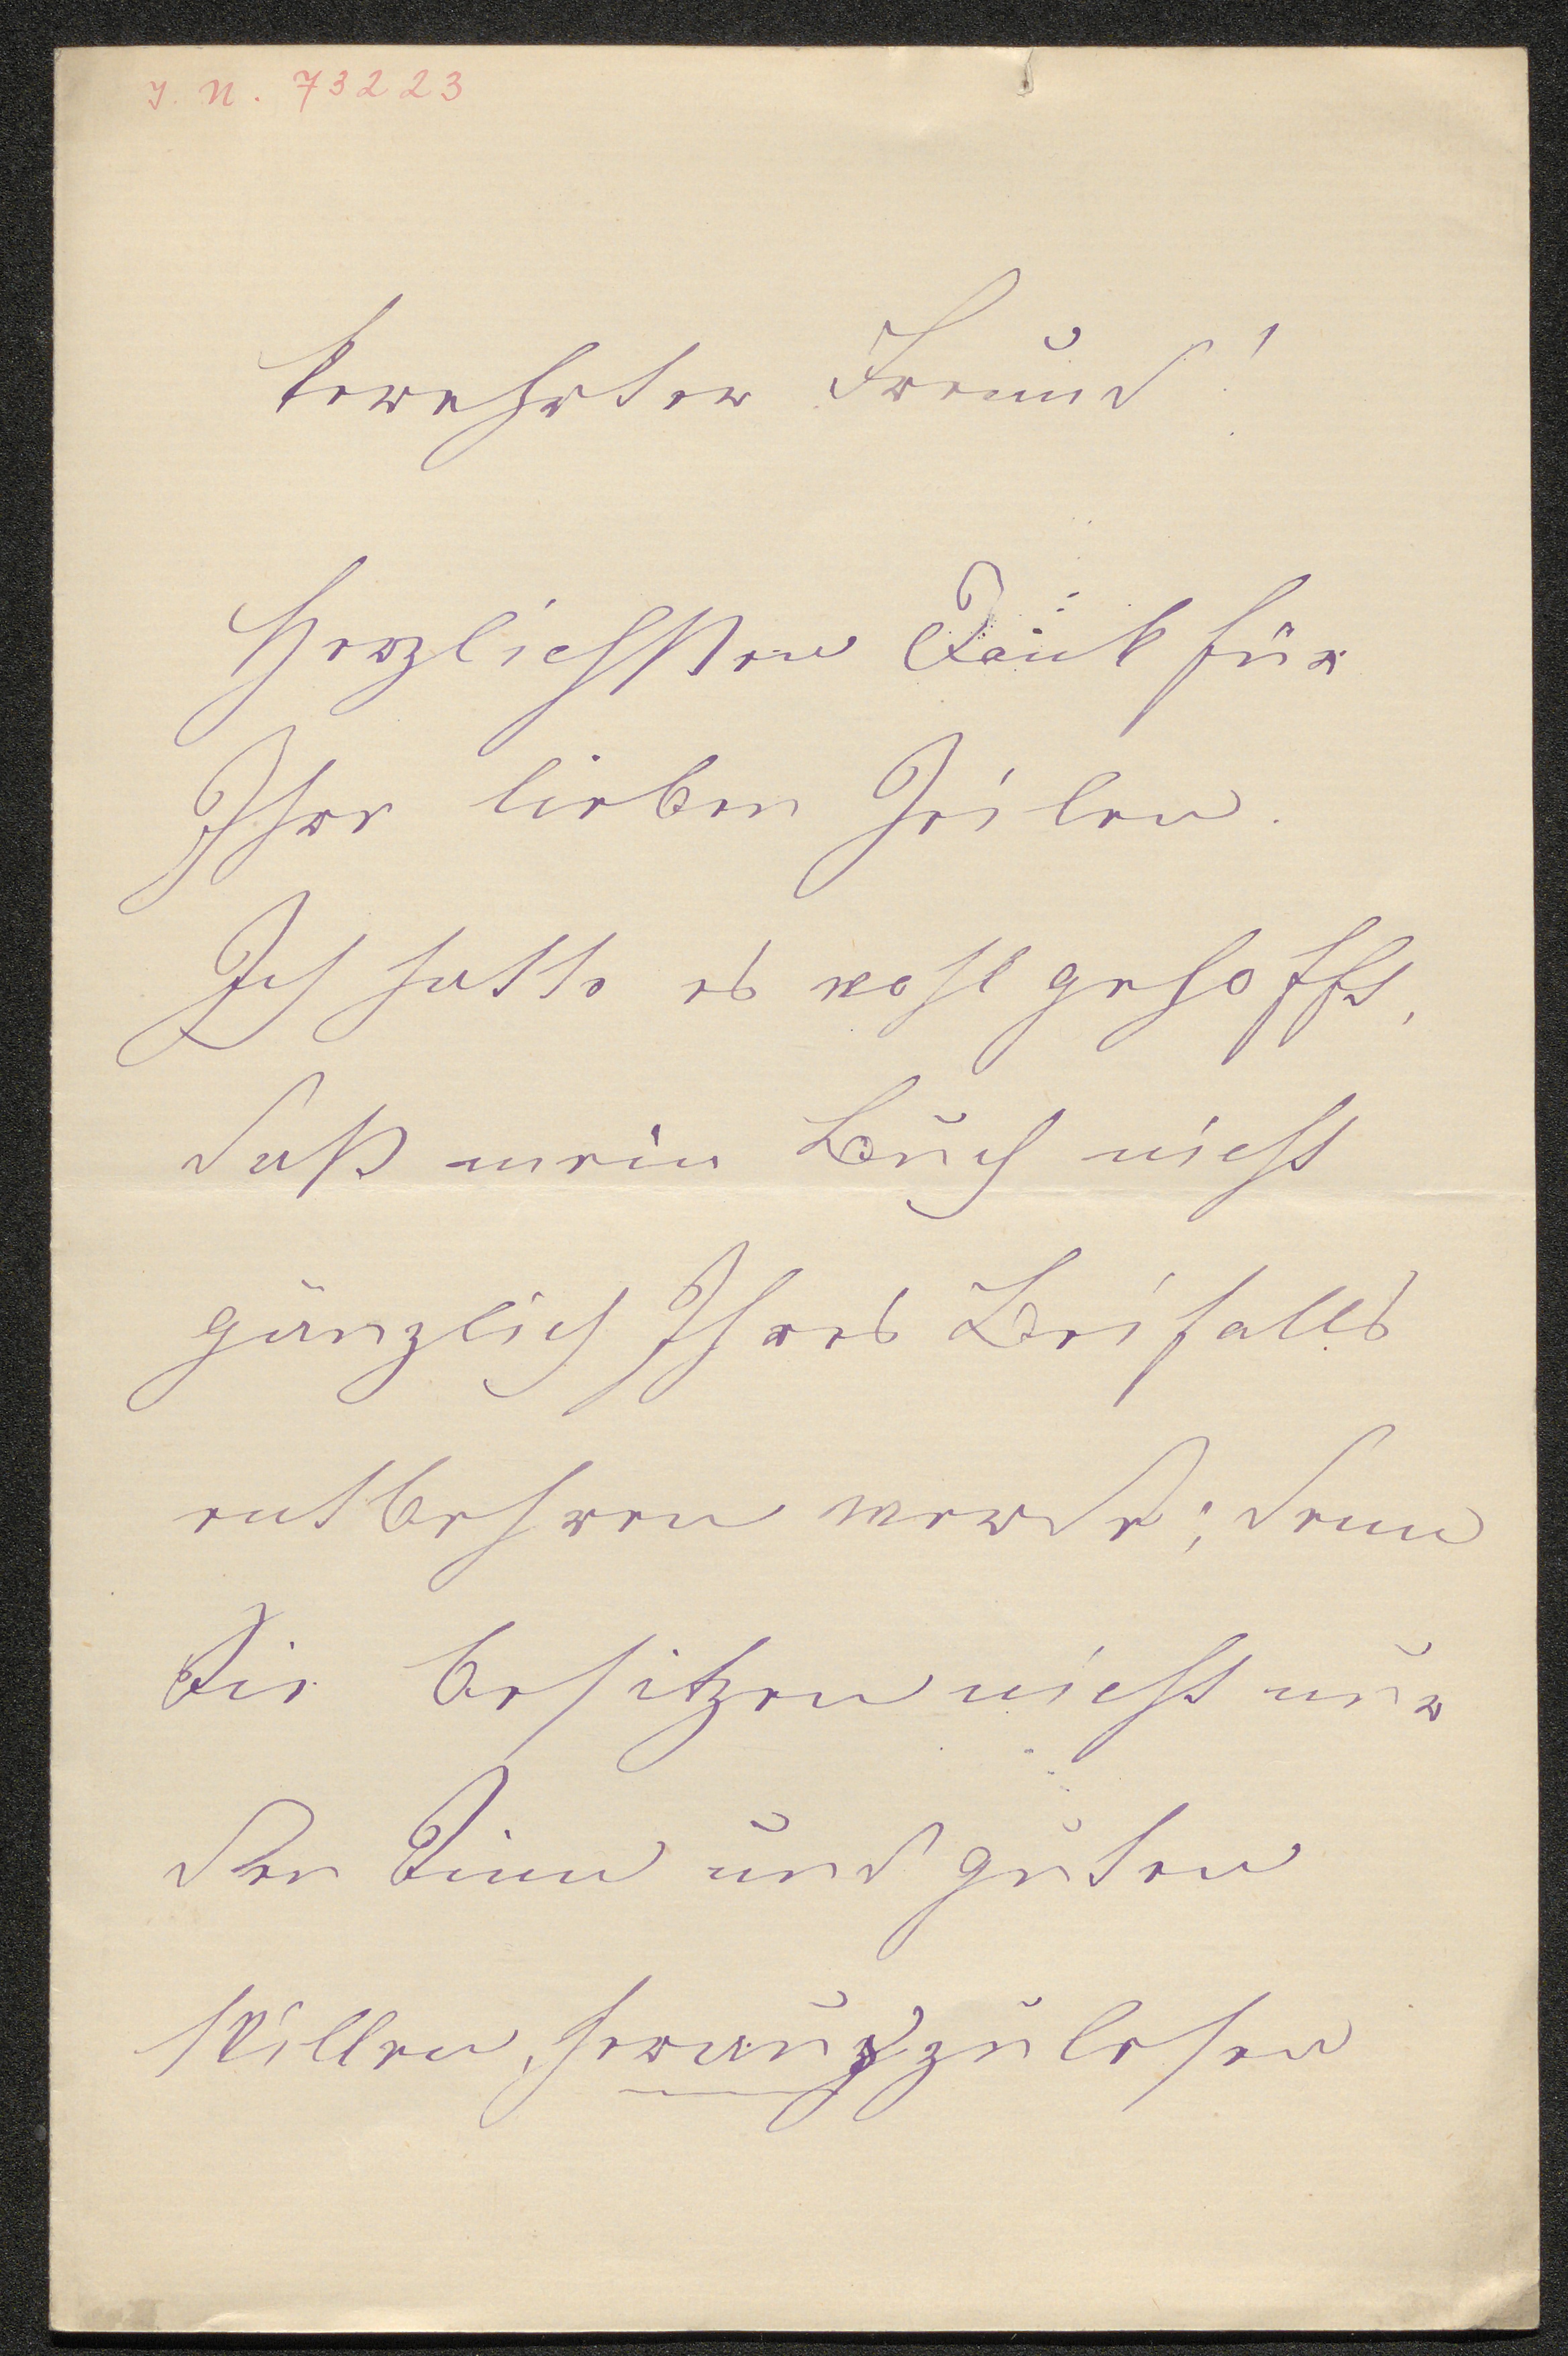 I. N. 73223
Verehrter Freund!
Herzlichsten Dank für
Ihre lieben Zeilen.
Ich hatte es wohl gehofft,
daß mein Buch nicht
gänzlich Ihres Beifalls
entbehren werde; denn
Sie besitzen nicht nur
den Sinn und guten
Willen, herauszulesen